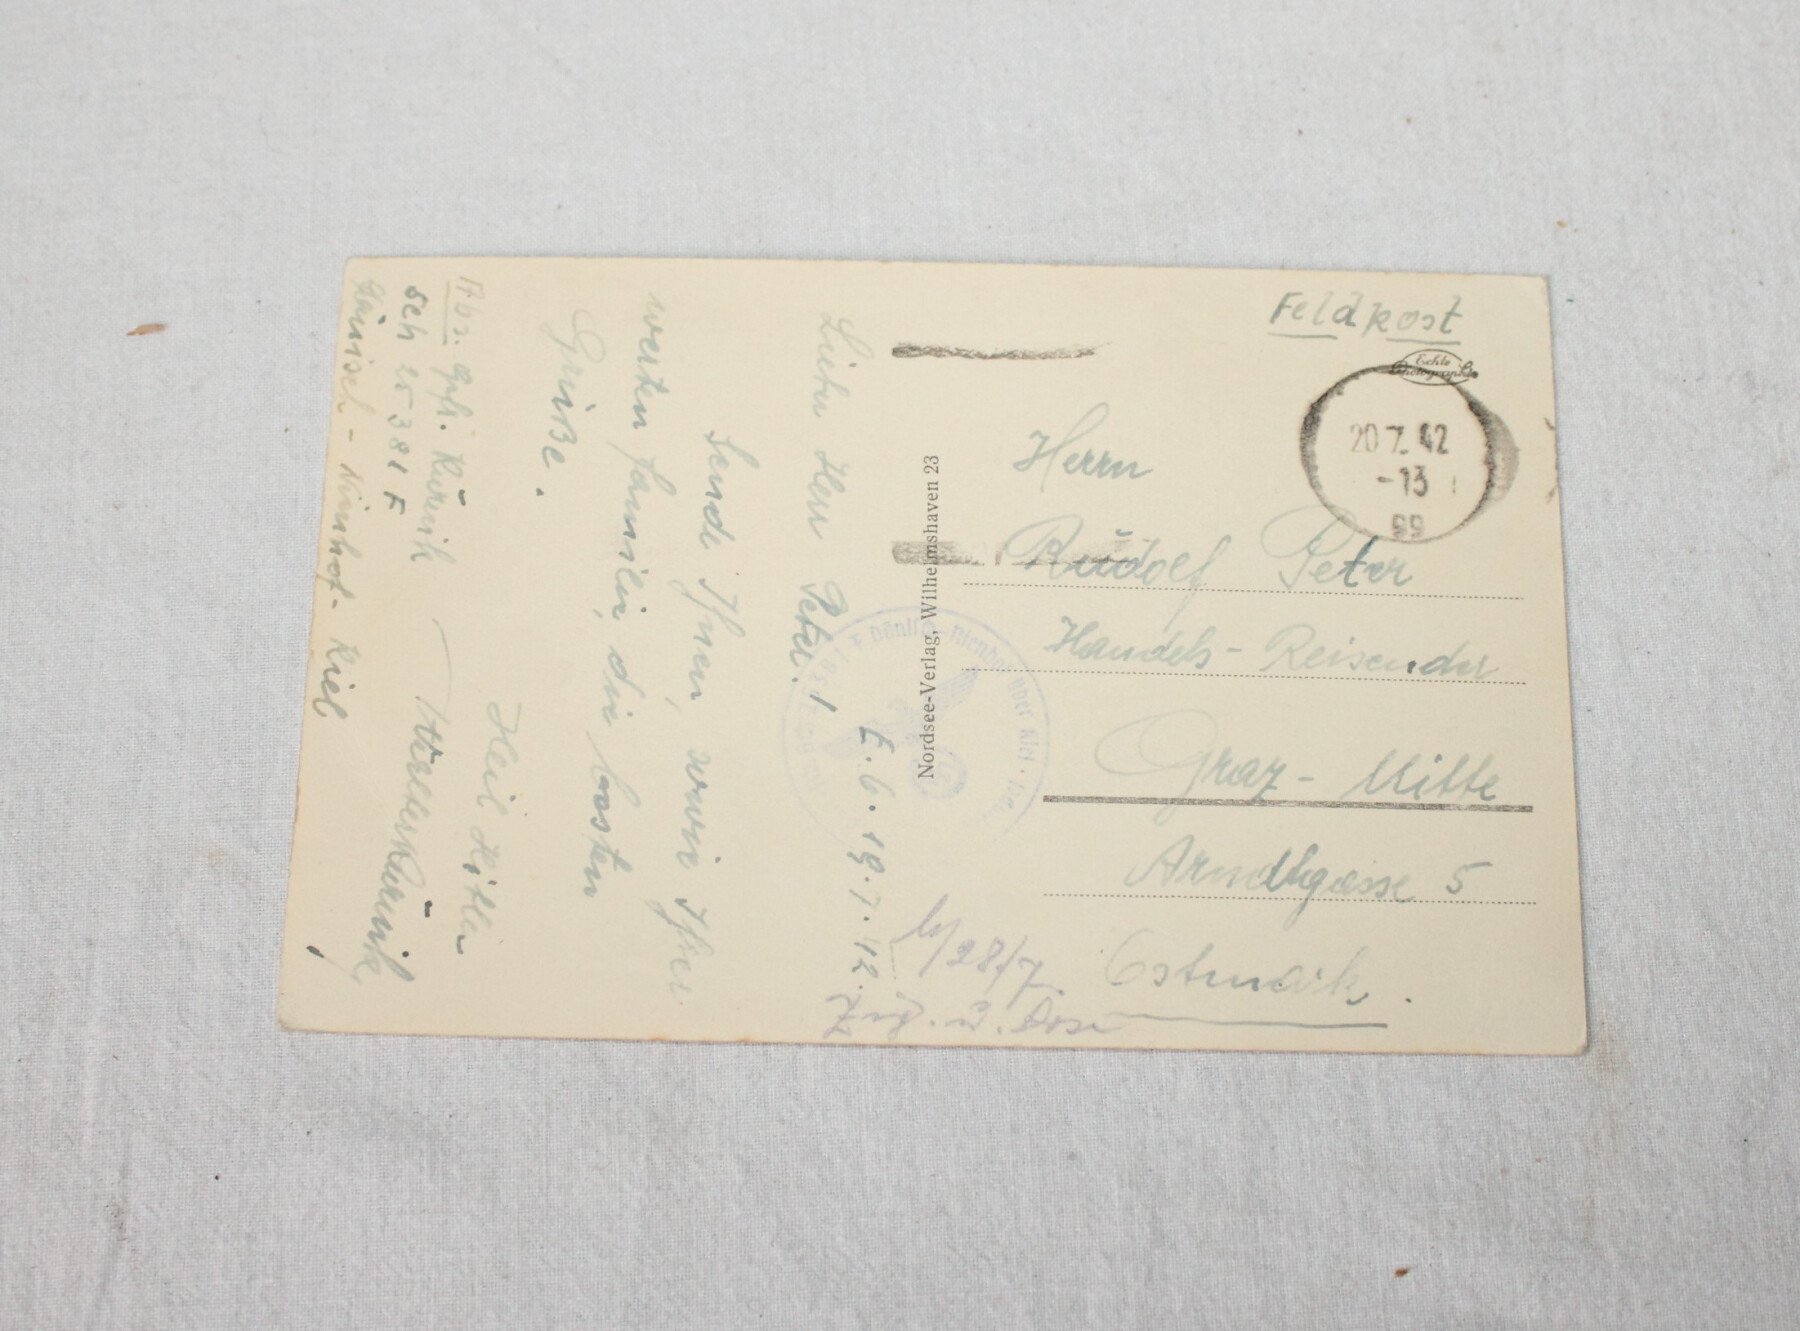 Feldpost
Echte
Photographie
20.7.42
-13
Herrn
Rudolf Peter
Handels-Reisender
Graz-Mitte
Arndtgasse 5
Ostmark.
Nordsee-Verlag, Wilhelmshaven 23
19.7.42.
28/7.
Lieber Herr Peter!
Sende Ihnen, sowie Ihrer
werten Familie, die besten
Grüße.
Heil Hitler
Abs. Gfr.
Sch 25381 F
Kiel